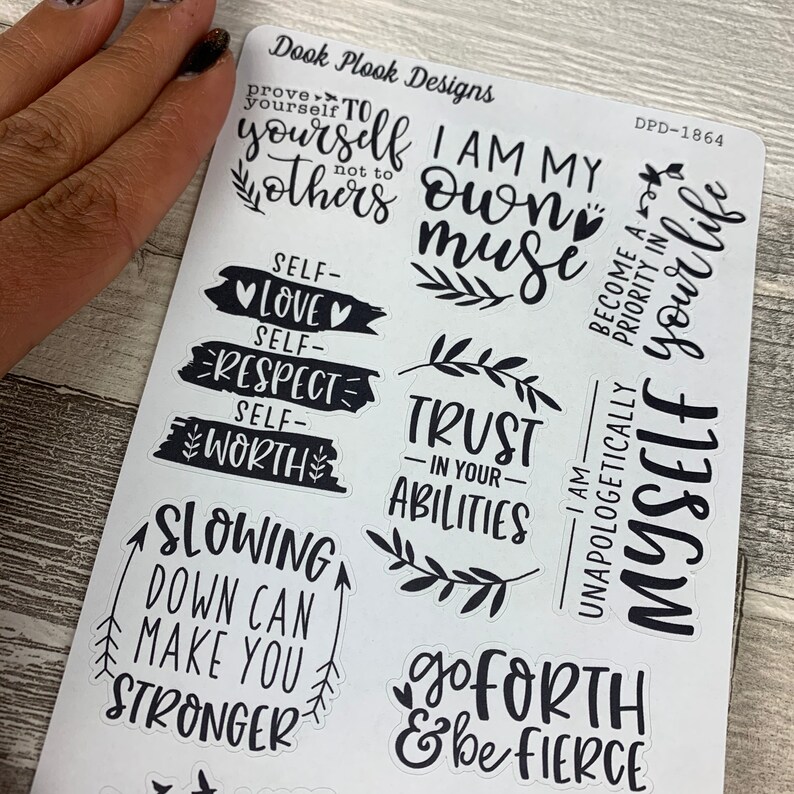 Dook Plook Designs
DPD-1864
prove
yourself TO
yourself
not to
others
I AM MY
own
muse
BECOME A
PRIORITY IN
your life
SELF-
LOVE
SELF-
RESPECT
SELF-
WORTH
TRUST
IN YOUR
ABILITIES
I AM
UNAPOLOGETICALLY
MYSELF
SLOWING
DOWN CAN
MAKE YOU
STRONGER
go FORTH
& be FIERCE